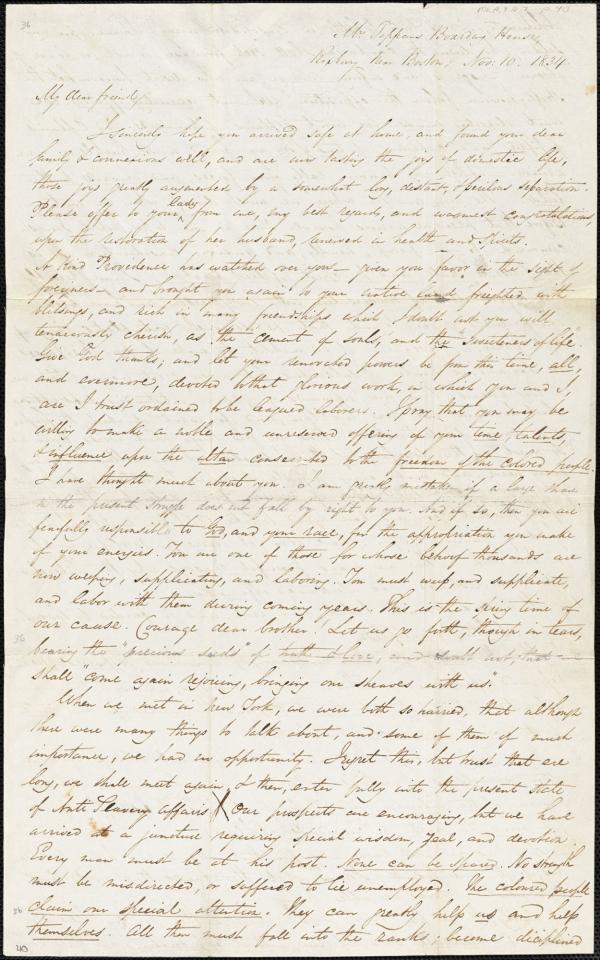 36
Mr Tappans Boarding House
Roxbury Near Boston, Nov: 10. 1834
My dear friend,
I sincerely hope you arrived safe at home, and found your dear
family & connexions well, and are now tasting the joys of domestic life,
those joys greatly augmented by a somewhat long, distant, & perilous separation.
Please offer to your lady from me, my best regards, and warmest congratulations,
upon the restoration of her husband, renewed in health and spirits.
A kind Providence has watched over you – given you favor in the sight of
foreigners – and brought you again to your native land freighted with
blessings, and rich in many friendships which I doubt not you will
tenaciously cherish, as the "cement of souls, and the sweeteners of life".
Give God thanks; and let your renovated powers be from this time, all,
and evermore, devoted to that glorious work, in which you and I,
are I trust ordained to be leagued laborers. I pray that you may be
willing to make a noble and unreserved offering of your time, talents,
& influence upon the altar consecrated to the freedom of the colored people.
I have thought much about you. I am greatly mistaken if a large share
in the present struggle does not fall by right to you. And if so, then you are
fearfully responsible to God, and your race, for the appropriation you make
of your energies. You are one of those for whose behoof thousands are
now weeping, supplicating, and laboring. You must weep, and supplicate,
and labor with them during coming years. This is the spring time of
our cause. Courage dear brother! Let us go forth, though in tears,
36
bearing the "precious seeds" of truth & love, and doubt not, that
shall "come again rejoicing, bringing our sheaves with us".
When we met in New York, we were both so hurried, that although
there were many things to talk about, and some of them of much
importance, we had no opportunity. I regret this, but trust that ere
long, we shall meet again, & then, enter fully into the present state
of Anti Slavery affairs. Our prospects are encouraging, but we have
arrived at a juncture requiring special wisdom, zeal, and devotion.
Every man must be at his post. None can be spared. No strength
must be misdirected, or suffered to lie unemployed. The coloured people
claim our special attention. They can greatly help us and help
36
themselves. All then must fall into the ranks; become diciplined
40